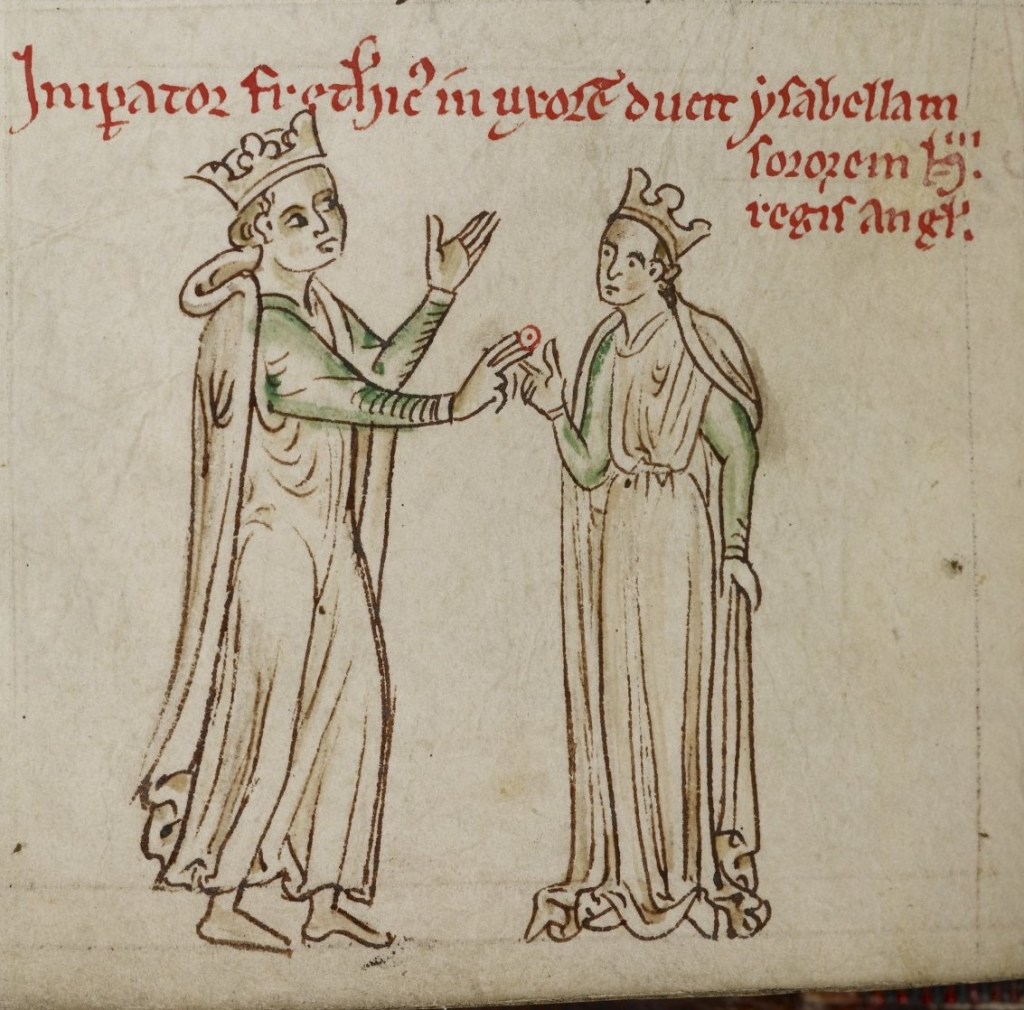 Imperator frethic᾽ in uxorē ducit ysabellam
sororem h̅. iii.
regis angl̅.